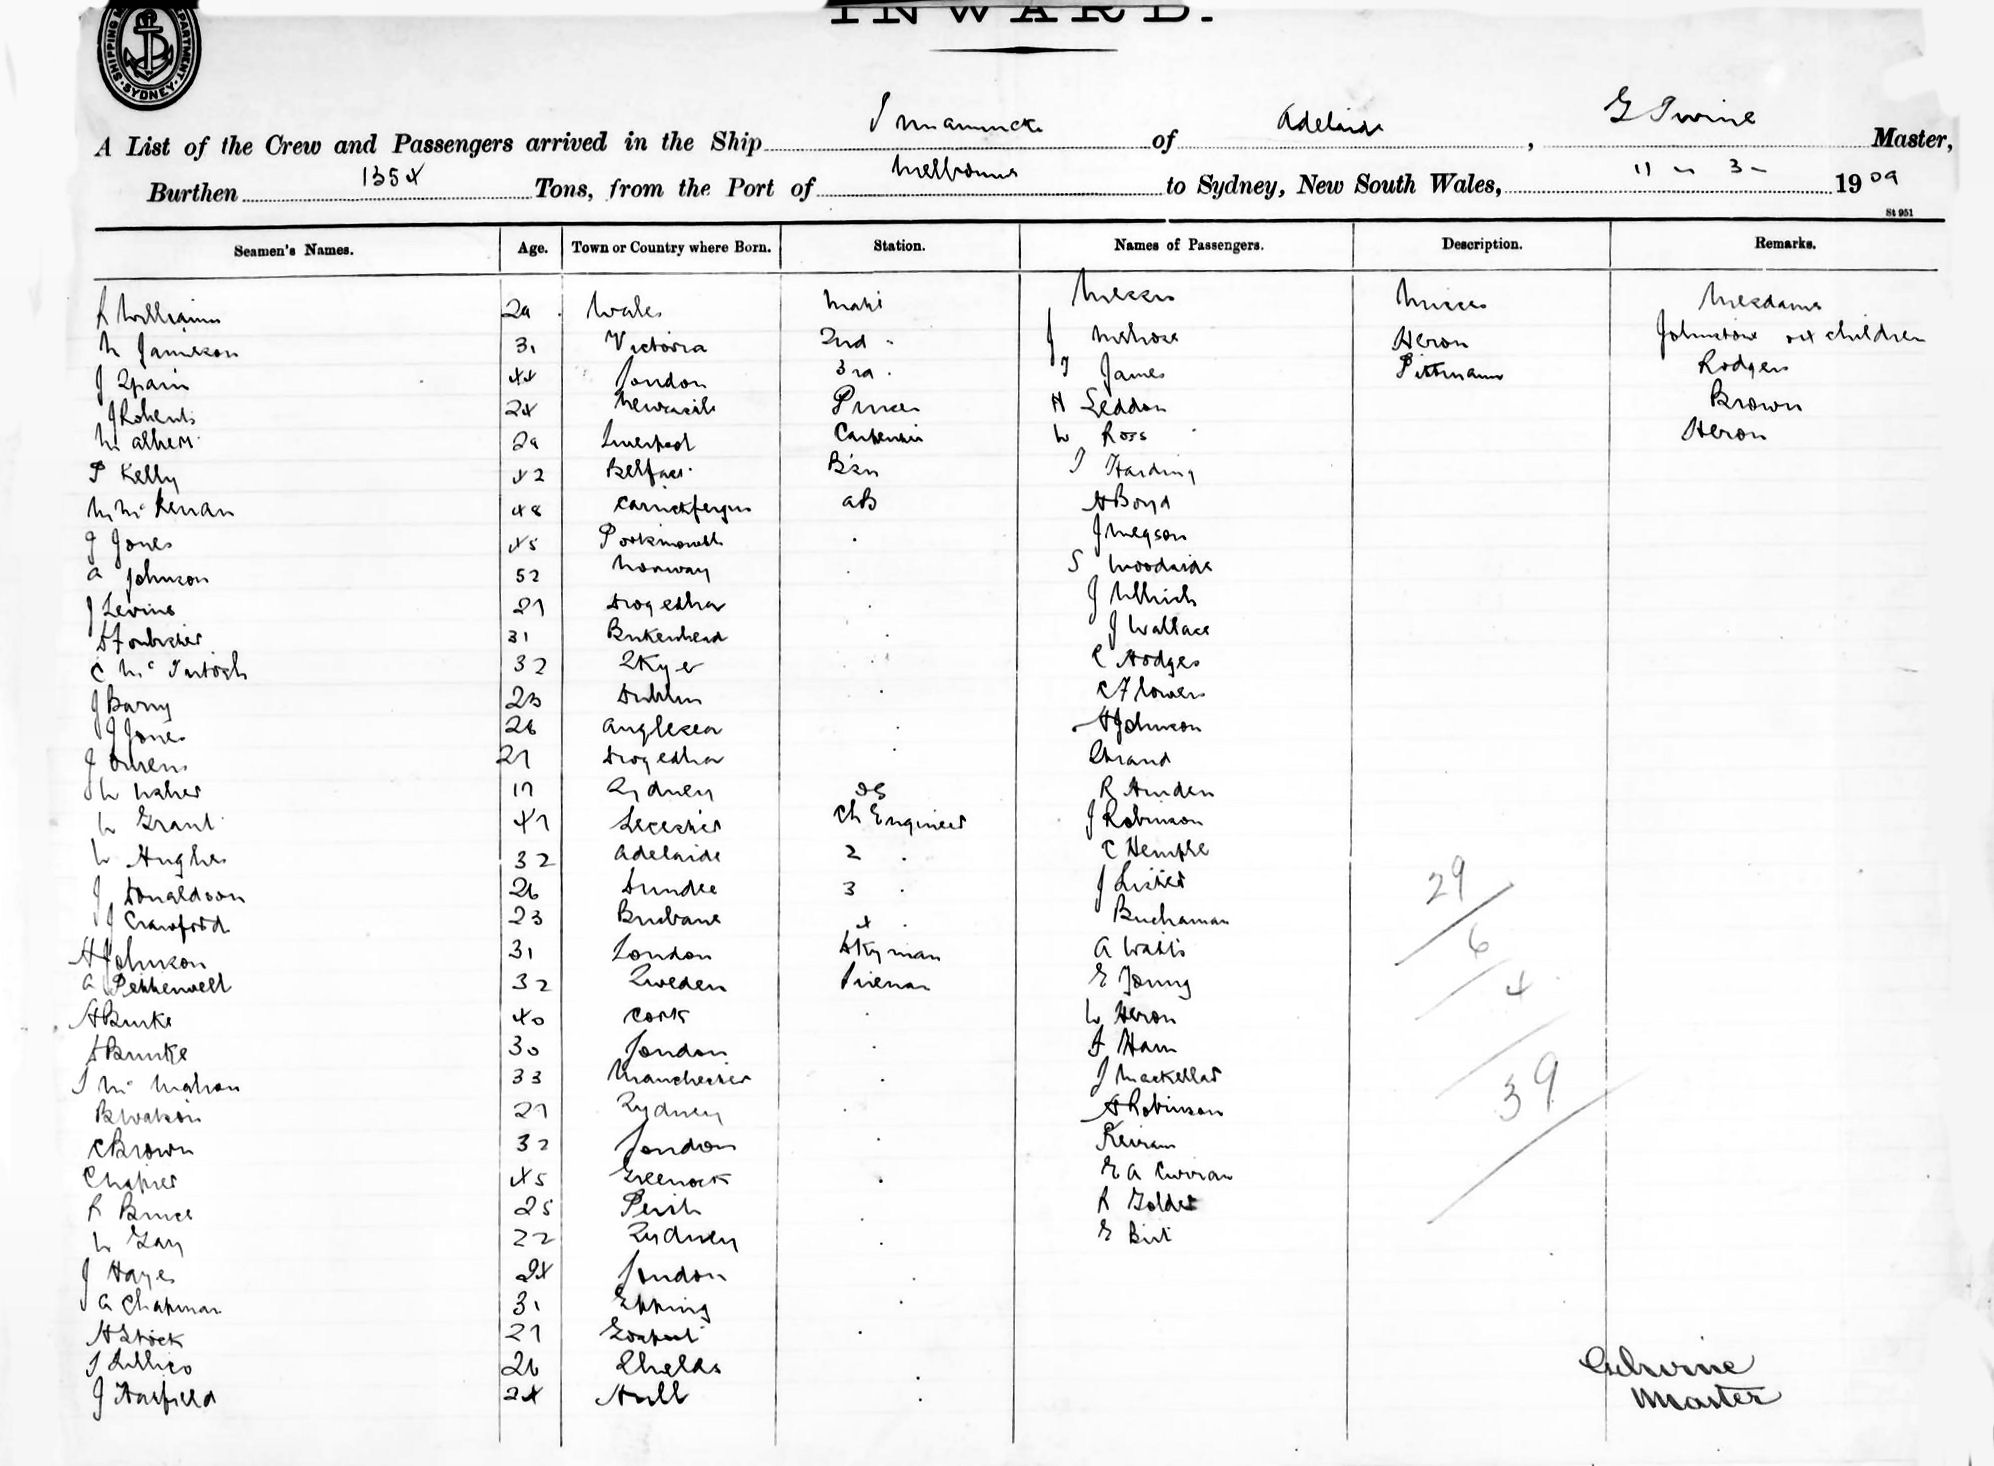 INWARD.
SHIPPING DEPARTMENT SYDNEY
A List of the Crew and Passengers arrived in the Ship Innamincka of Adelaide, G Irvine Master,
Burthen 1354 Tons, from the Port of Melbourne to Sydney, New South Wales, 11 - 3 - 1909
St 951
Seamen's Names. Age. Town or Country where Born. Station. Names of Passengers. Description. Remarks.
R Williams 29 Wales Mate Messrs Misses Mesdames
N Jameson 31 Victoria 2nd " J Melrose Heron Johnstone & children
J Spain 44 London 3rd " T James Pittmann Rodgers
J Roberts 24 Newcastle Purser H Seddon Brown
29 Liverpool Carpenter W Ross Heron
P Kelly 42 Belfast B'sn J Harding
M McKernan 48 Carrickfergus AB H Boyd
J Jones 45 Portsmouth J Megson
A Johnson 52 Norway S Woodside
J Levins 27 Drogedha J Ullrich
D Foubister 31 Birkenhead J Wallace
C McIntosh 32 Skye C Hodges
J Barry 23 Dublin C Flowers
J Jones 26 Anglesea H Johnson
J Owens 27 Drogedha
W Usher 17 Sydney OS R Hinden
W Grant 47 Leicester Ch Engineer J Robinson
W Hughes 32 Adelaide 2 " C Hemple
J Donaldson 26 Dundee 3 " J Lister
J Crawford 23 Brisbane 4 " Buchannan
H Johnson 31 London Dkyman A Watts
A Pettenwell 32 Sweden Fireman E Young
H Burke 40 Cork W Heron
D Burke 30 London F Ham
J McMahon 33 Manchester J Mackellar
B Watson 27 Sydney H Robinson
C Brown 32 London
C Napier 45 Greenock E A Curran
R Bruce 25 Perth R Golder
W Gay 22 Sydney E Birt
J Hayes 24 London
A Chapman 31 Epping
H Stock 27 Gosport
J Lillico 26 Shelds
J Hatfield 24 Hull
29
6
4
39
G Irvine
Master